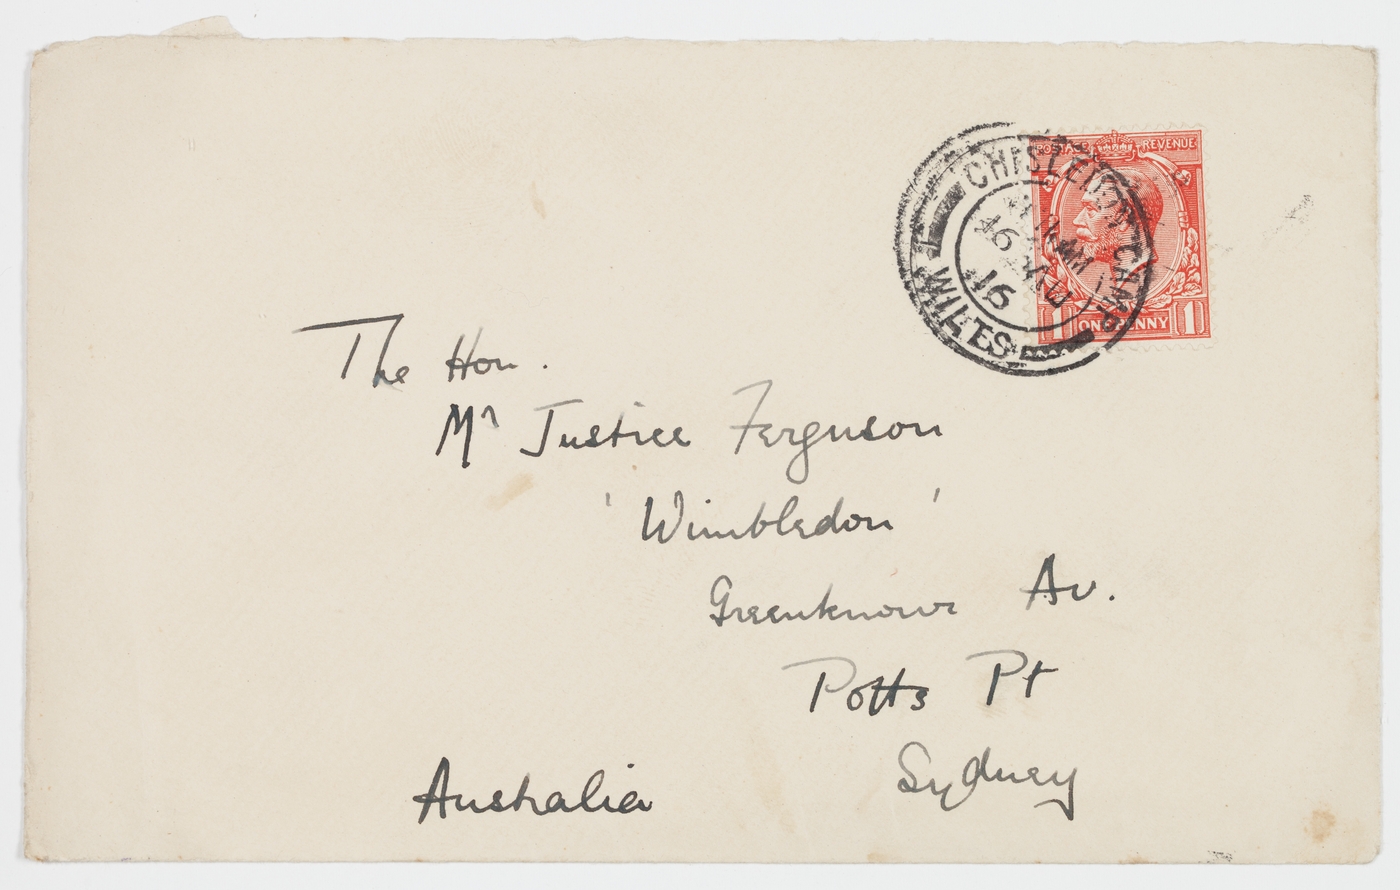 POSTAGE REVENUE
1 ONE PENNY 1
CHISLEDON CAMP
16
16
WILTS
The Hon.
Mr Justice Ferguson
'Wimbledon'
Greenknowe Av.
Potts Pt
Sydney
Australia